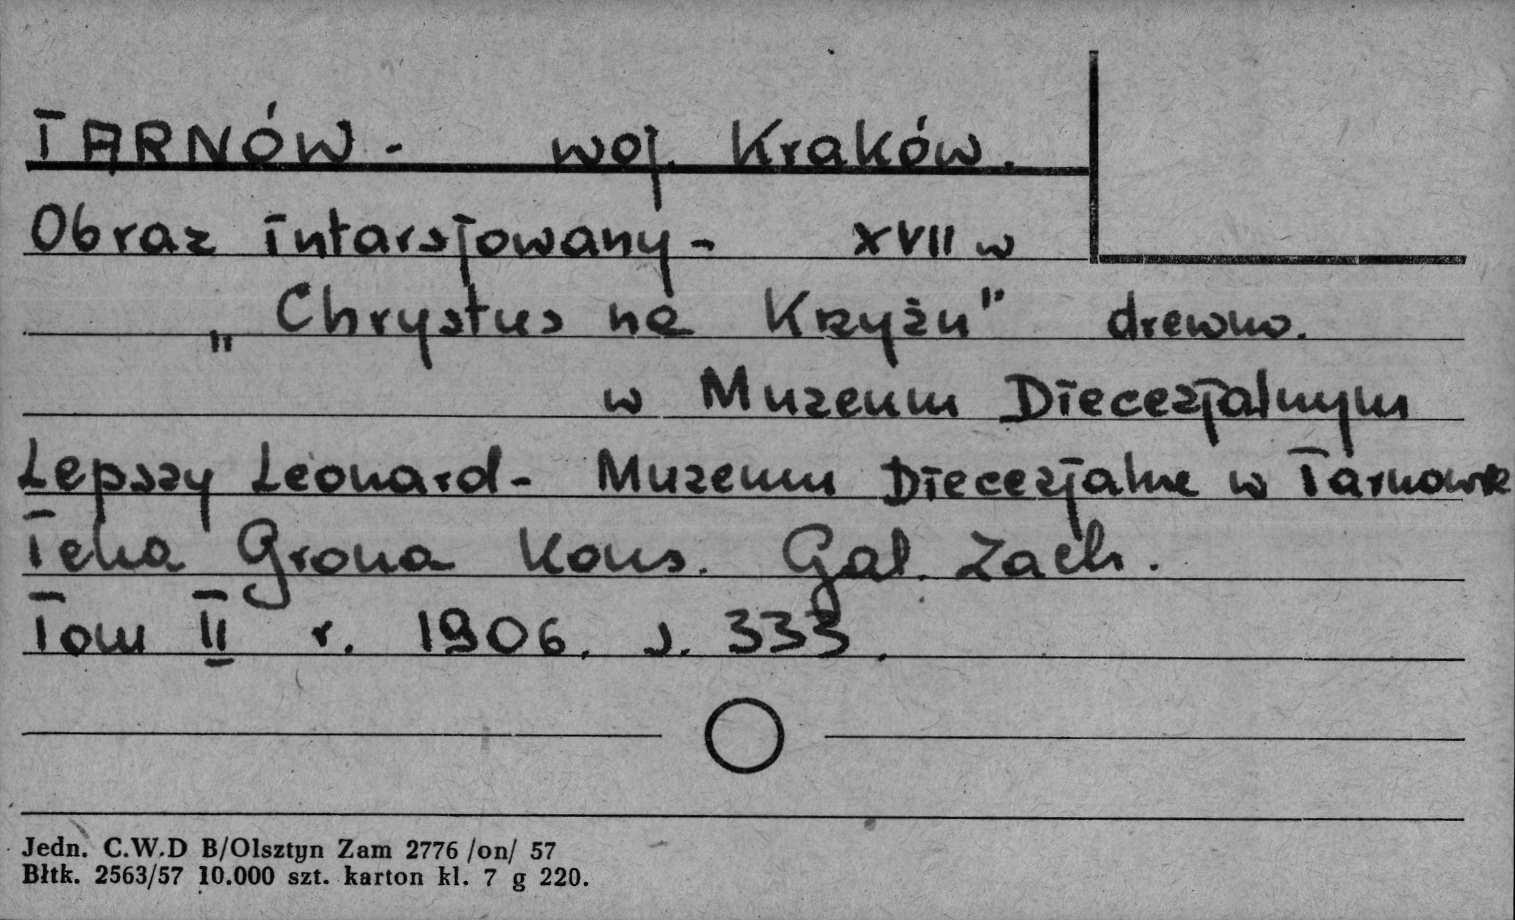 TARNÓW - woj. Kraków.
Obraz intarsjowany - XVII w
„Chrystus na Krzyżu" drewno.
w Muzeum Diecezjalnym
Lepszy Leonard - Muzeum Diecezjalne w Tarnowie
Teka Grona Kons. Gal. Zach.
Tom II r. 1906. s. 333.
Jedn. C.W.D B/Olsztyn Zam 2776 /on/ 57
Błtk. 2563/57 10.000 szt. karton kl. 7 g 220.